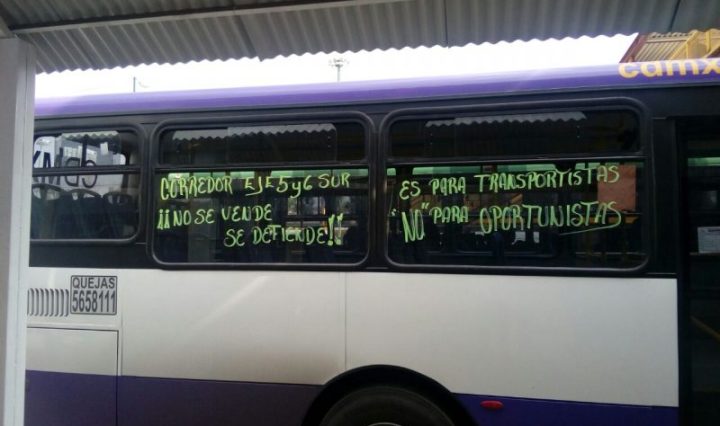 cdmx
CDMX
CORREDOR EJE 5 y 6 SUR
¡¡NO SE VENDE
SE DEFIENDE!!
ES PARA TRANSPORTISTAS
"NO" PARA OPORTUNISTAS
QUEJAS
5658111